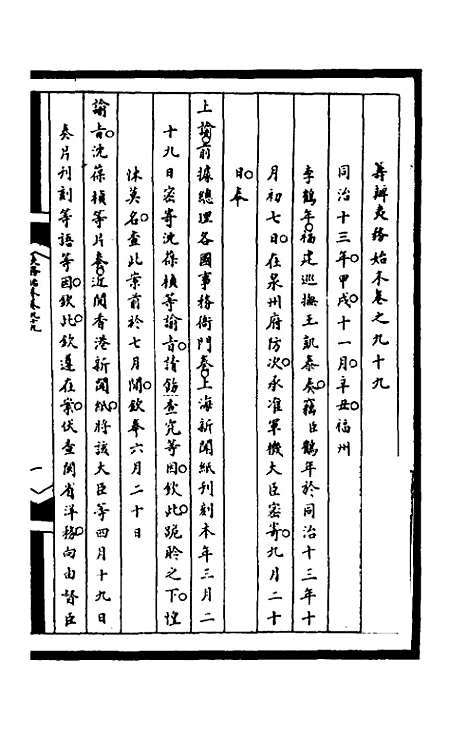 籌辦夷務始末卷之九十九
同治十三年甲戌十一月辛丑福州
李鶴年福建巡撫王凱泰奏竊臣鶴年於同治十三年十
月初七日在泉州府防次承准軍機大臣密寄九月二十
日奉
上諭前據總理各國事務衙門奏上海新聞紙刊刻本年三月二
十九日密寄沈葆楨等諭旨請飭查究等因欽此跪聆之下惶
悚莫名查此案前於七月間欽奉六月二十日
諭旨沈葆楨等片奏近閱香港新聞紙將該大臣等四月十九日
奏片刊刻等語等因欽此欽遵在案伏查閩省洋務向由督臣
夷務始末卷九十九
一